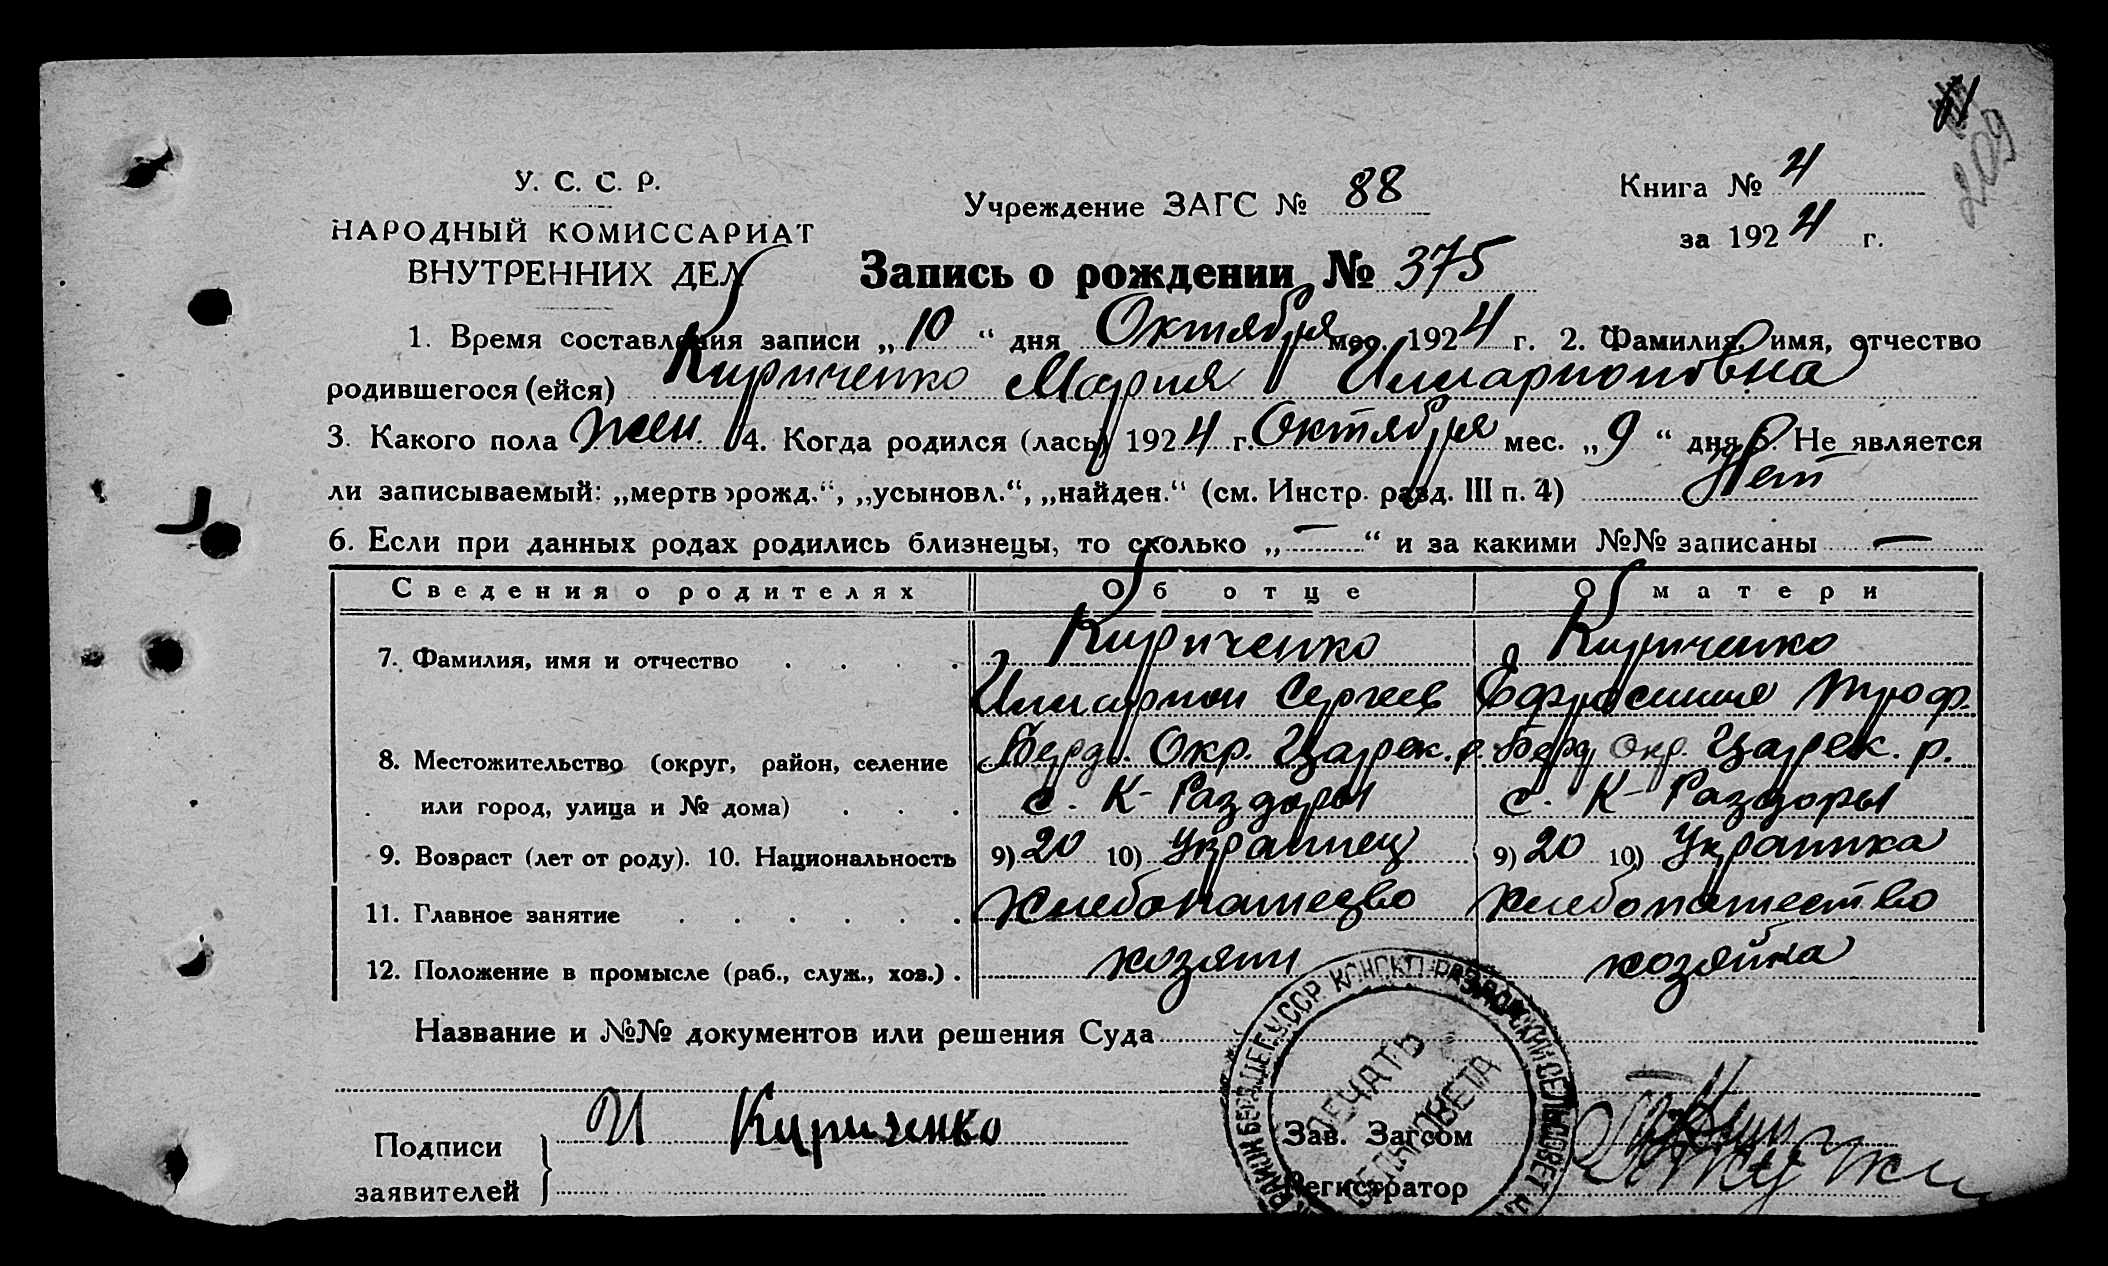 209
У. С. С. Р.
НАРОДНЫЙ КОМИССАРИАТ
ВНУТРЕННИХ ДЕЛ
Учреждение ЗАГС № 88
Книга № 4
за 1924 г.
Запись о рождении № 375
1. Время составления записи „10“ дня Октября мес. 1924 г. 2. Фамилия, имя, отчество
родившегося (ейся) Кириченко Мария Илларионовна
3. Какого пола жен. 4. Когда родился (лась) 1924 г. Октября мес. „9“ дня 5. Не является
ли записываемый: „мертворожд.“, „усыновл.“, „найден.“ (см. Инстр. разд. III п. 4) Нет
6. Если при данных родах родились близнецы, то сколько „—“ и за какими №№ записаны —
Сведения о родителях Об отце О матери
7. Фамилия, имя и отчество . . . . Кириченко Кириченко
Илларион Сергеев Ефросиния Троф.
8. Местожительство (округ, район, селение Берд. Окр. Царек. р. Берд Окр. Царек. р.
или город, улица и № дома) . . . с. К-Раздоры с. К-Раздоры
9. Возраст (лет от роду). 10. Национальность 9) 20 10) Украинец 9) 20 10) Украинка
11. Главное занятие . . . . . . Хлебопашецво хлебопашество
12. Положение в промысле (раб., служ., хоз.) . хозяин хозяйка
Название и №№ документов или решения Суда
Подписи
заявителей
И Кириченко
Зав. Загсом
Регистратор
РАЙОН БЕРД. ДЕГ. У.С.С.Р. КОНСКО-РАЗДОРСКИЙ СЕЛЬСОВЕТ
ПЕЧАТЬ
СЕЛЬСОВЕТА